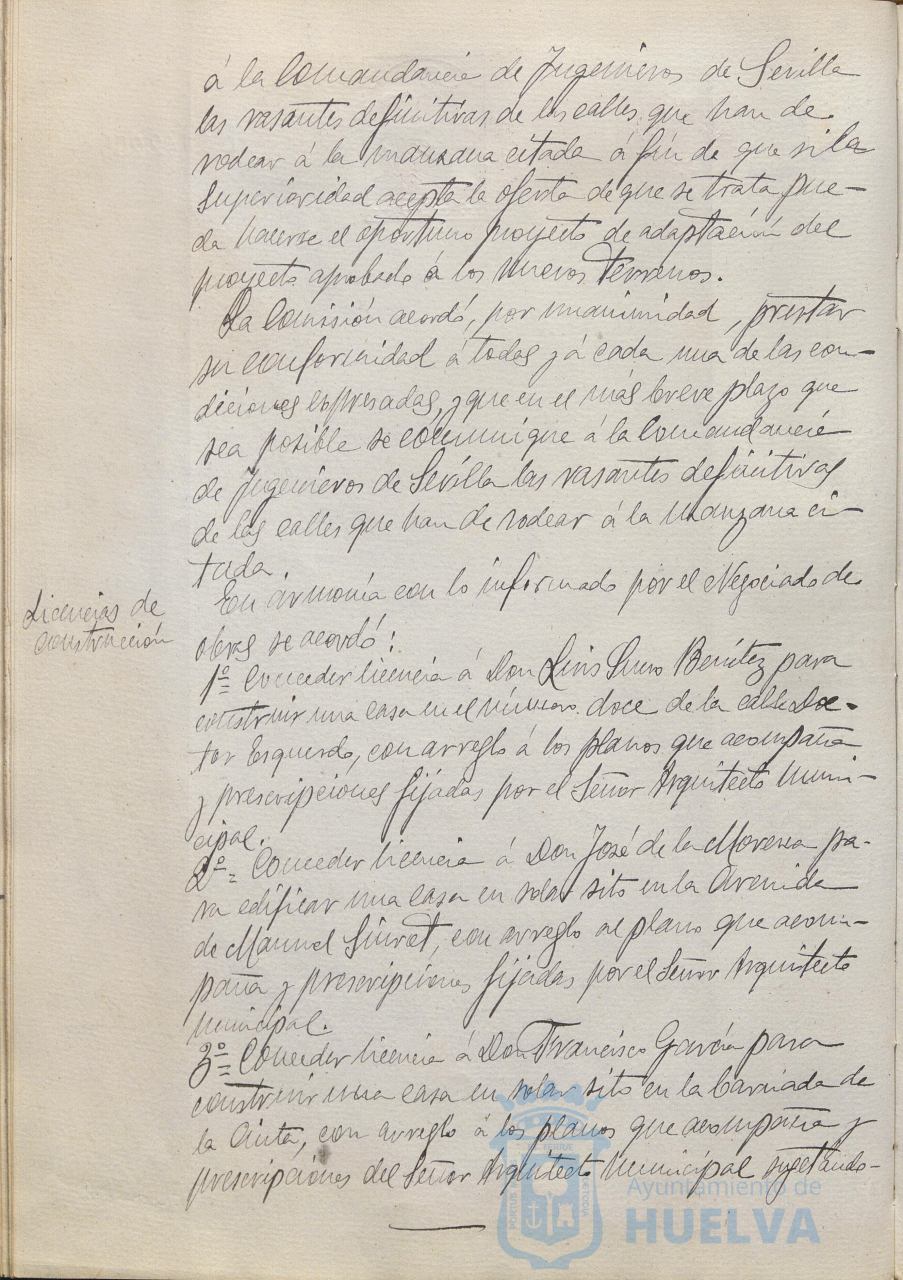 á la Comandancia de Ingenieros de Sevilla
las rasantes definitivas de las calles que han de
rodear á la manzana citada á fin de que si la
Superioridad acepta la oferta de que se trata pue-
da hacerse el oportuno proyecto de adaptación del
proyecto aprobado á los nuevos terrenos.
La Comisión acordó, por unanimidad, prestar
su conformidad a todas y á cada una de las con-
diciones expresadas, y que en el más breve plazo que
sea posible se comunique á la Comandancia
de Ingenieros de Sevilla las rasantes definitivas
de las calles que han de rodear á la manzana ci-
tada.
Licencias de
construcción
En armonía con lo informado por el Negociado de
obras se acordó:
1º = Conceder licencia á Don Luis Suero Benítez para
construir una casa en el número doce de la calle Doc-
tor Esquerdo, con arreglo á los planos que acompaña
y prescripciones fijadas por el Señor Arquitecto Muni-
cipal.
2º = Conceder licencia á Don José de la Morena pa-
ra edificar una casa en solar sito en la Avenida
de Manuel Siurot, con arreglo al plano que acom-
paña y prescripciones fijadas por el Señor Arquitecto
Municipal.
3º = Conceder licencia á Don Francisco García para
construir una casa en solar sito en la barriada de
la Cinta, con arreglo á los planos que acompaña y
prescripciones del Señor Arquitecto Municipal sujetándo-
Ayuntamiento de
HUELVA